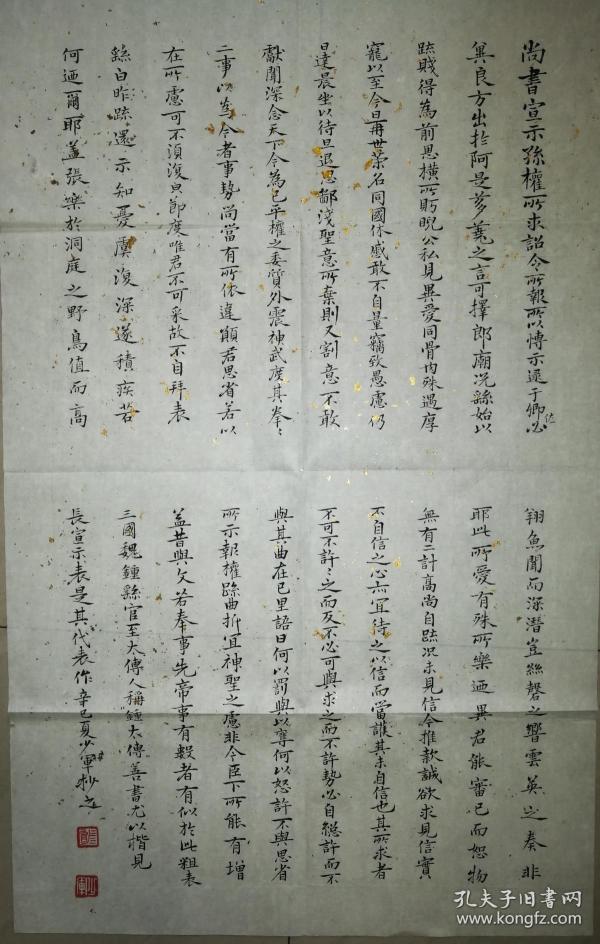 尚書宣示孫權所求詔令所報所以博示逮于卿佐必
異良方出於阿是芻蕘之言可擇郎廟況繇始以
疏賤得為前恩橫所眄睨公私見異愛同骨肉殊遇厚
寵以至今日再世榮名同國休慼敢不自量竊致愚慮仍
日達晨坐以待旦退思鄙淺聖意所棄則又割意不敢
獻聞深念天下今為已平權之委質外震神武度其拳〻
二事以為今者事勢尚當有所依違願君思省若以
在所慮可不須復皃節度唯君不可采故不自拜表
繇白昨疏還示知憂虞復深遂積疾苦
何迺爾耶蓋張樂於洞庭之野鳥值而高
翔魚聞而深潛豈絲磬之響雲英之奏非
耶此所愛有殊所樂迺異君能審己而恕物
無有二計高尚自疏況未見信今推款誠欲求見信實
不自信之心亦宜待之以信而當護其未自信也其所求者
不可不許〻之而反不必可與求之而不許勢必自絕許而不
與其曲在己里語曰何以罰與以奪何以怒許不與思省
所示報權疏曲折宜神聖之慮非今臣下所能有增
益昔與文若奉事先帝事有數者有似於此粗表
三國魏鍾繇官至太傅人稱鍾太傅善書尤以楷見
長宣示表是其代表作辛巳夏少軍抄之
孔夫子旧书网
www.kongfz.com